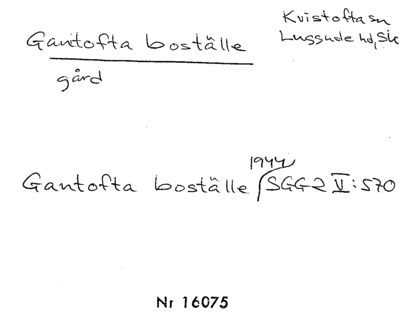 Kvistofta sn
Luggude hd, Sk
Gantofta boställe
gård
1944
Gantofta boställe SGG2 V: 570
Nr 16075